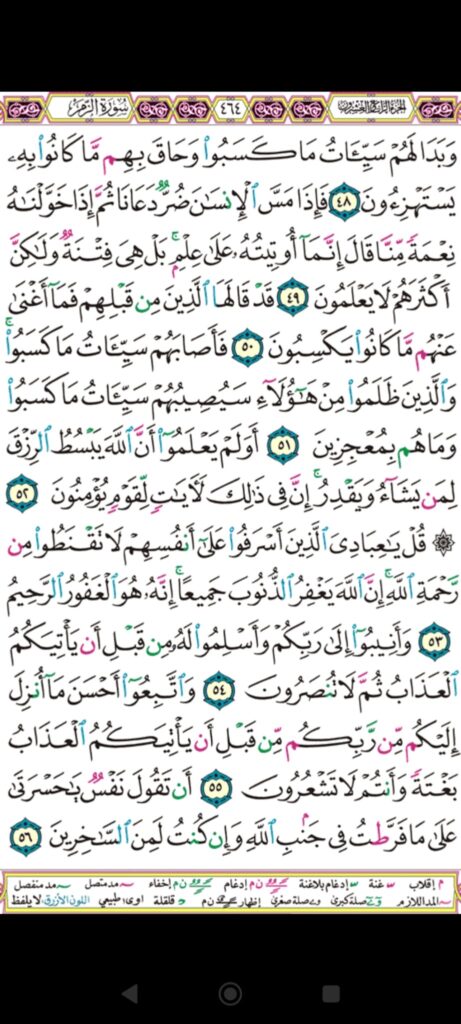 الجزء الرابع والعشرون ٤٦٤ سورة الزمر
وَبَدَا لَهُمْ سَيِّئَاتُ مَا كَسَبُوا۟ وَحَاقَ بِهِم مَّا كَانُوا۟ بِهِۦ
يَسْتَهْزِءُونَ ٤٨ فَإِذَا مَسَّ ٱلْإِنسَٰنَ ضُرٌّ دَعَانَا ثُمَّ إِذَا خَوَّلْنَٰهُ
نِعْمَةً مِّنَّا قَالَ إِنَّمَآ أُوتِيتُهُۥ عَلَىٰ عِلْمٍۭ ۚ بَلْ هِىَ فِتْنَةٌ وَلَٰكِنَّ
أَكْثَرَهُمْ لَا يَعْلَمُونَ ٤٩ قَدْ قَالَهَا ٱلَّذِينَ مِن قَبْلِهِمْ فَمَآ أَغْنَىٰ
عَنْهُم مَّا كَانُوا۟ يَكْسِبُونَ ٥٠ فَأَصَابَهُمْ سَيِّئَاتُ مَا كَسَبُوا۟ ۚ
وَٱلَّذِينَ ظَلَمُوا۟ مِنْ هَٰٓؤُلَآءِ سَيُصِيبُهُمْ سَيِّئَاتُ مَا كَسَبُوا۟
وَمَا هُم بِمُعْجِزِينَ ٥١ أَوَلَمْ يَعْلَمُوٓا۟ أَنَّ ٱللَّهَ يَبْسُطُ ٱلرِّزْقَ
لِمَن يَشَآءُ وَيَقْدِرُ ۚ إِنَّ فِى ذَٰلِكَ لَءَايَٰتٍ لِّقَوْمٍ يُؤْمِنُونَ ٥٢
۞ قُلْ يَٰعِبَادِىَ ٱلَّذِينَ أَسْرَفُوا۟ عَلَىٰٓ أَنفُسِهِمْ لَا تَقْنَطُوا۟ مِن
رَّحْمَةِ ٱللَّهِ ۚ إِنَّ ٱللَّهَ يَغْفِرُ ٱلذُّنُوبَ جَمِيعًا ۚ إِنَّهُۥ هُوَ ٱلْغَفُورُ ٱلرَّحِيمُ
٥٣ وَأَنِيبُوٓا۟ إِلَىٰ رَبِّكُمْ وَأَسْلِمُوا۟ لَهُۥ مِن قَبْلِ أَن يَأْتِيَكُمُ
ٱلْعَذَابُ ثُمَّ لَا تُنصَرُونَ ٥٤ وَٱتَّبِعُوٓا۟ أَحْسَنَ مَآ أُنزِلَ
إِلَيْكُم مِّن رَّبِّكُم مِّن قَبْلِ أَن يَأْتِيَكُمُ ٱلْعَذَابُ
بَغْتَةً وَأَنتُمْ لَا تَشْعُرُونَ ٥٥ أَن تَقُولَ نَفْسٌ يَٰحَسْرَتَىٰ
عَلَىٰ مَا فَرَّطتُ فِى جَنۢبِ ٱللَّهِ وَإِن كُنتُ لَمِنَ ٱلسَّٰخِرِينَ ٥٦
م إقلاب غنة إدغام بلاغنة ن م إدغام ن م إخفاء مد متصل مد منفصل
المد اللازم صلة كبرى صلة صغرى إظهار ن م قلقلة اوى طبيعي اللون الأزرق لا يلفظ